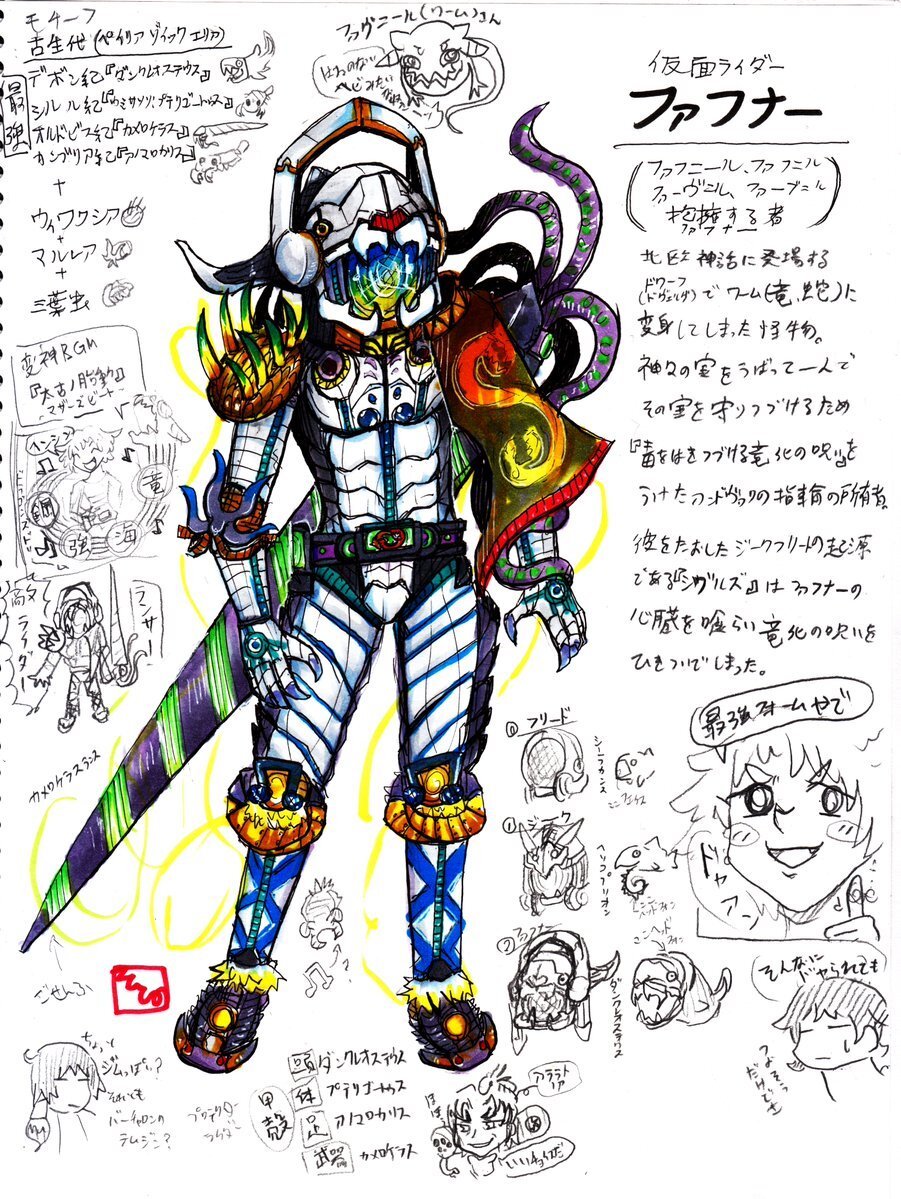 モチーフ
古生代(ペイリアゾイックエリア)
最強
デボン紀『ダンクルオステウス』
シルル紀『ウミサソリ:プテリゴートゥス』
オルドビス紀『カメロケラス』
カンブリア紀『アノマロカリス』
+
ウィワクシア
+
マルレラ
+
三葉虫
変神BGM
『太古ノ胎動』
マザーズビート
ヘンシン
竜
海
強
ランサー
カメロケラスランス
ごせんふ
ファヴニール(ワーム)さん
はねのない
仮面ライダー
ファフナー
(ファフニール、ファフニル
ファーヴニル、ファーブニル
抱擁する者)
ファフナー
北欧神話に登場する
ドワーフ
(ドヴェルグ)でワーム(竜、蛇)に
変身してしまった怪物。
神々の宝をうばって一人で
その宝を守りつづけるため
『毒をはきつづける竜化の呪い』を
うけたアンドヴァリの指輪の所有者。
彼をたおしたジークフリートの起源
である『シグルズ』はファフナーの
心臓を喰らい竜化の呪いを
ひきついでしまった。
最強フォームやで
ドヤァーン
⓪フリード
シーラカンス
①ジーク
ヘリコプリオン
②ファフナー
ダンクレオステウス
そんなにドヤられても
ちょっと
ジムっぽい?
それとも
バーチャロンの
テムジン?
プロテクター
甲殻
頭 ダンクレオステウス
体 プテリゴートゥス
足 アノマロカリス
武器 カメロケラス
いいチョイスだ